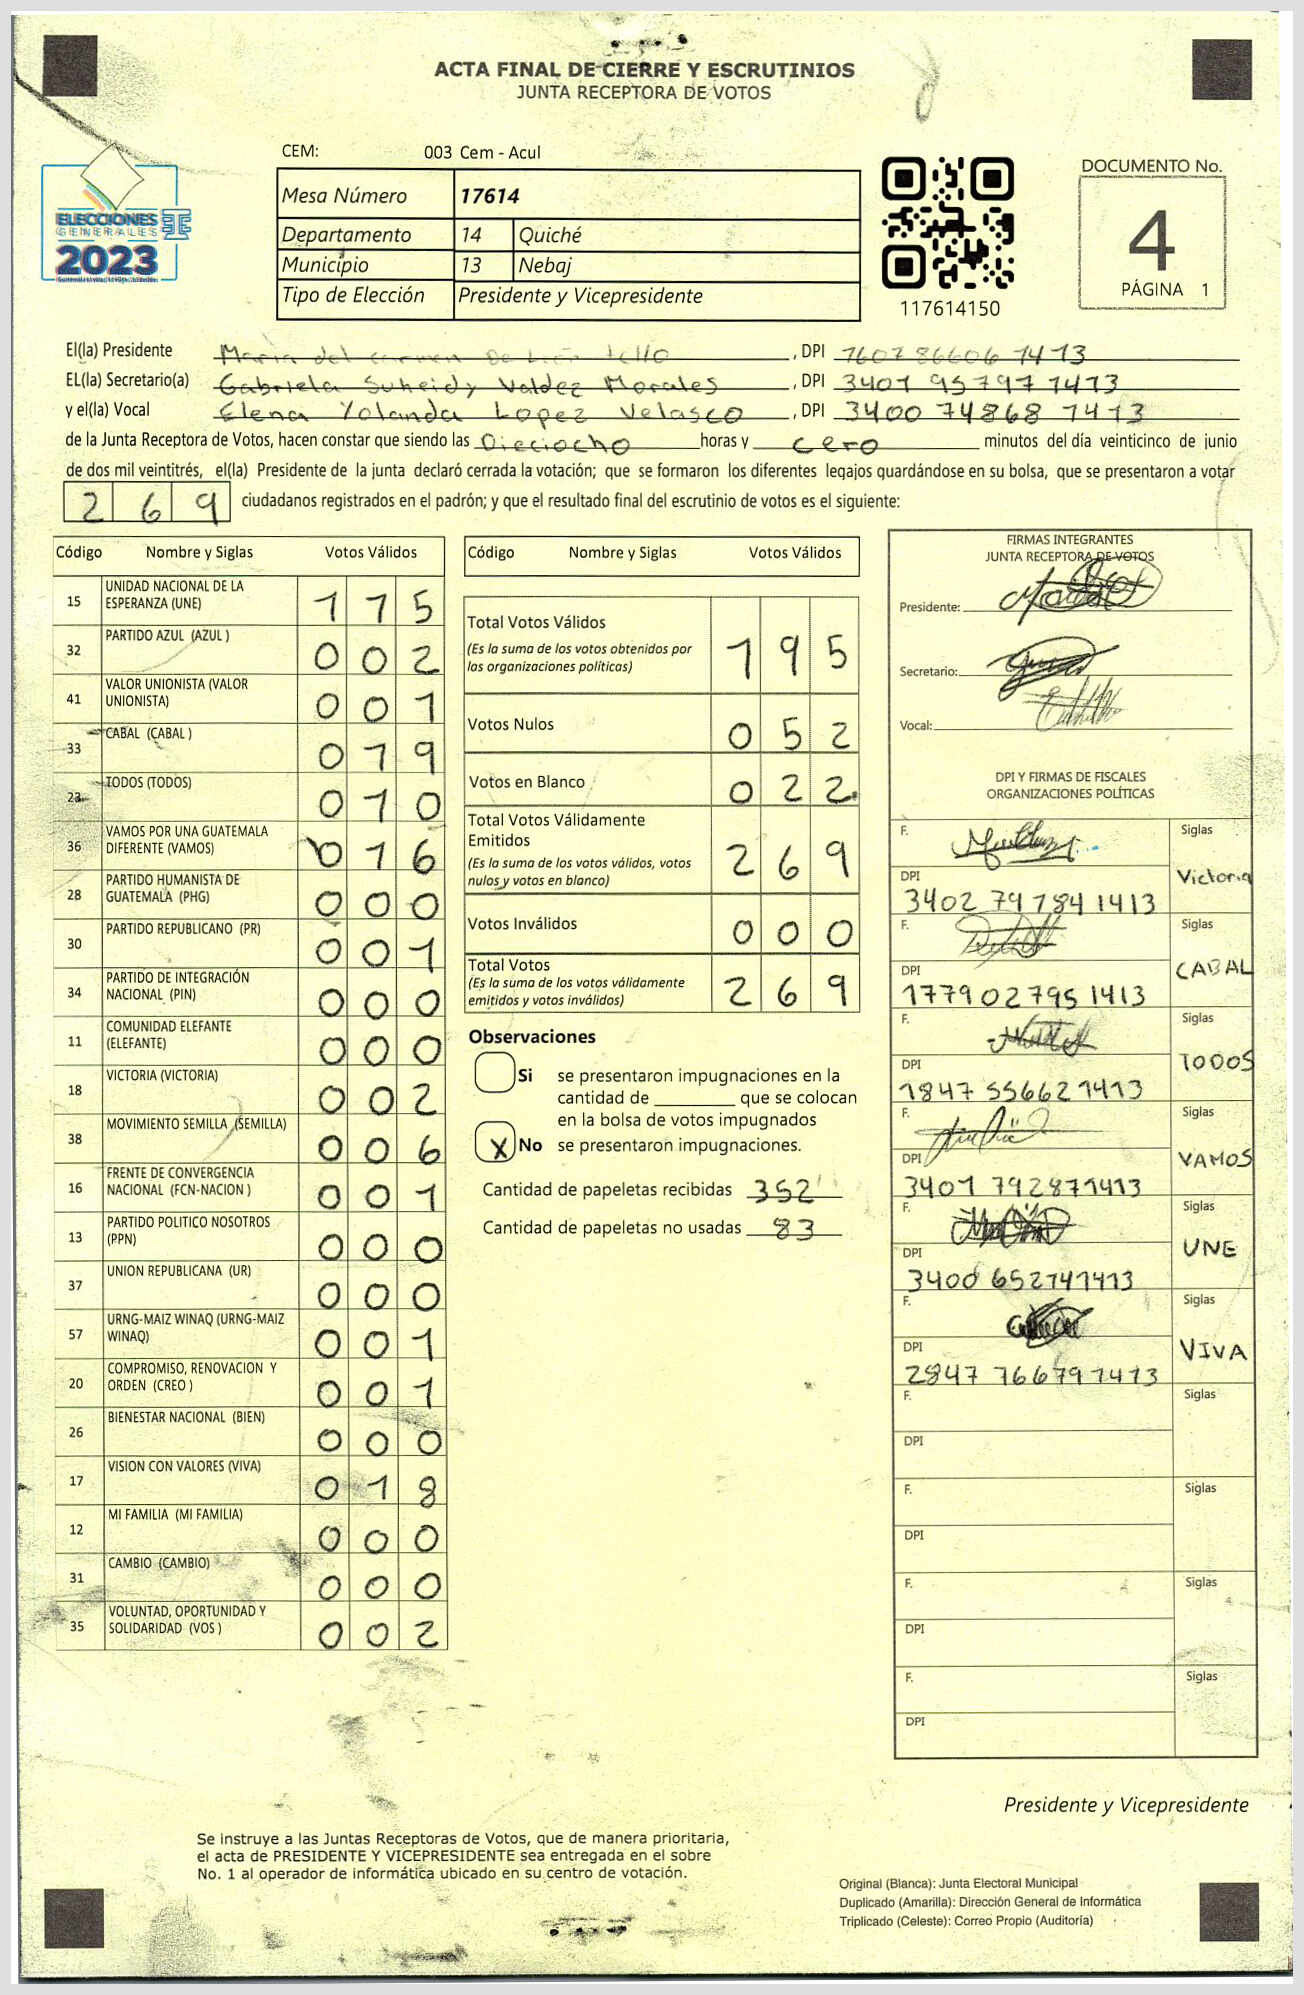 ACTA FINAL DE CIERRE Y ESCRUTINIOS
JUNTA RECEPTORA DE VOTOS
CEM: 003 Cem - Acul
ELECCIONES
GENERALES
2023
Mesa Número 17614
Departamento 14 Quiché
Municipio 13 Nebaj
Tipo de Elección Presidente y Vicepresidente
117614150
DOCUMENTO No.
4
PÁGINA 1
El(la) Presidente Maria del Carmen De León tello, DPI 1607 86606 1413
EL(la) Secretario(a) Gabriela Suheidy Valdez Morales, DPI 3401 95797 1413
y el(la) Vocal Elena Yolanda Lopez Velasco, DPI 3400 74868 1413
de la Junta Receptora de Votos, hacen constar que siendo las Dieciocho horas y cero minutos del día veinticinco de junio
de dos mil veintitrés, el(la) Presidente de la junta declaró cerrada la votación; que se formaron los diferentes legajos guardándose en su bolsa, que se presentaron a votar
269 ciudadanos registrados en el padrón; y que el resultado final del escrutinio de votos es el siguiente:
Código Nombre y Siglas Votos Válidos
15 UNIDAD NACIONAL DE LA ESPERANZA (UNE) 115
32 PARTIDO AZUL (AZUL ) 002
41 VALOR UNIONISTA (VALOR UNIONISTA) 001
33 CABAL (CABAL ) 019
23 TODOS (TODOS) 010
36 VAMOS POR UNA GUATEMALA DIFERENTE (VAMOS) 016
28 PARTIDO HUMANISTA DE GUATEMALA (PHG) 000
30 PARTIDO REPUBLICANO (PR) 001
34 PARTIDO DE INTEGRACIÓN NACIONAL (PIN) 000
11 COMUNIDAD ELEFANTE (ELEFANTE) 000
18 VICTORIA (VICTORIA) 002
38 MOVIMIENTO SEMILLA (SEMILLA) 006
16 FRENTE DE CONVERGENCIA NACIONAL (FCN-NACION ) 001
13 PARTIDO POLITICO NOSOTROS (PPN) 000
37 UNION REPUBLICANA (UR) 000
57 URNG-MAIZ WINAQ (URNG-MAIZ WINAQ) 001
20 COMPROMISO, RENOVACION Y ORDEN (CREO ) 001
26 BIENESTAR NACIONAL (BIEN) 000
17 VISION CON VALORES (VIVA) 018
12 MI FAMILIA (MI FAMILIA) 000
31 CAMBIO (CAMBIO) 000
35 VOLUNTAD, OPORTUNIDAD Y SOLIDARIDAD (VOS ) 002
Código Nombre y Siglas Votos Válidos
Total Votos Válidos 195
(Es la suma de los votos obtenidos por
las organizaciones políticas)
Votos Nulos 052
Votos en Blanco 022
Total Votos Válidamente
Emitidos 269
(Es la suma de los votos válidos, votos
nulos y votos en blanco)
Votos Inválidos 000
Total Votos 269
(Es la suma de los votos válidamente
emitidos y votos inválidos)
Observaciones
Si se presentaron impugnaciones en la
cantidad de ________ que se colocan
en la bolsa de votos impugnados
X No se presentaron impugnaciones.
Cantidad de papeletas recibidas 352
Cantidad de papeletas no usadas 83
FIRMAS INTEGRANTES
JUNTA RECEPTORA DE VOTOS
Presidente:
Secretario:
Vocal:
DPI Y FIRMAS DE FISCALES
ORGANIZACIONES POLÍTICAS
F. Siglas
Victoria
DPI
3402 79 1784 1413
F. Siglas
CABAL
DPI
1779 02795 1413
F. Siglas
TODOS
DPI
1847 55662 1413
F. Siglas
VAMOS
DPI
3401 792871413
F. Siglas
UNE
DPI
3400 652741413
F. Siglas
VIVA
DPI
2847 766791413
F. Siglas
DPI
F. Siglas
DPI
F. Siglas
DPI
F. Siglas
DPI
Presidente y Vicepresidente
Se instruye a las Juntas Receptoras de Votos, que de manera prioritaria,
el acta de PRESIDENTE Y VICEPRESIDENTE sea entregada en el sobre
No. 1 al operador de informática ubicado en su centro de votación.
Original (Blanca): Junta Electoral Municipal
Duplicado (Amarilla): Dirección General de Informática
Triplicado (Celeste): Correo Propio (Auditoría)